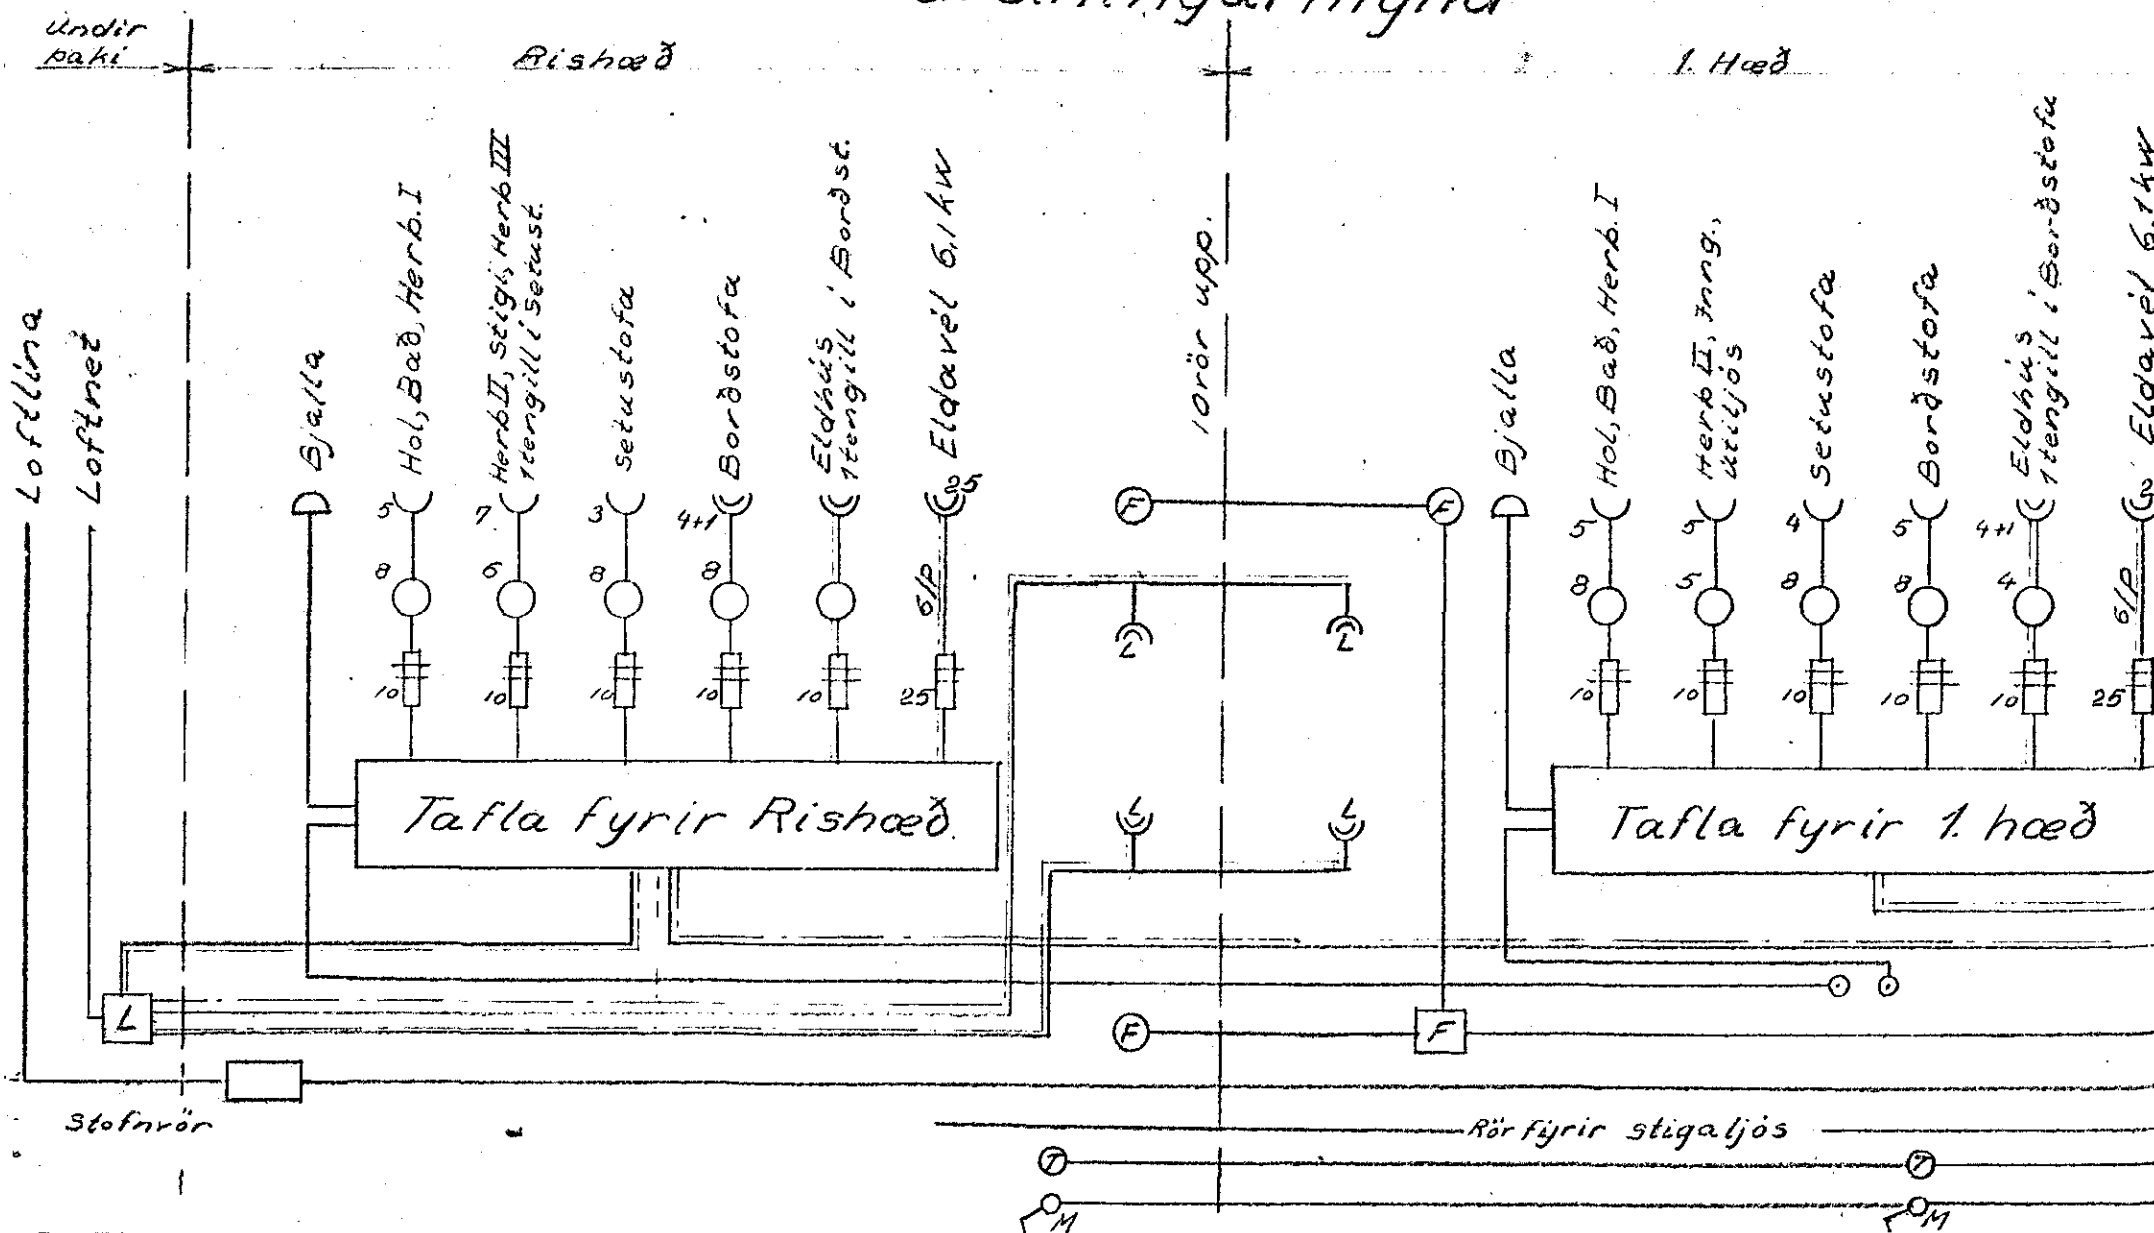 Undir
þaki
Rishæð
1. Hæð
Loftlína
Loftnet
Bjalla
Hol, Bað, Herb. I
Herb II, stigi, Herb III
1 tengill í Setust.
Setustofa
Borðstofa
Eldhús
1 tengill í Borðst.
Eldavél 6,1 kw
10 rör upp.
Bjalla
Hol, Bað, Herb. I
Herb II, Inng.,
útiljós
Setustofa
Borðstofa
Eldhús
1 tengill í Borðstofu
Eldavél 6,1 kw
5
7
3
4+1
25
F
F
5
5
4
5
4+1
8
6
8
8
6/P
8
5
8
8
4
6/P
L
L
10
10
10
10
10
25
10
10
10
10
10
25
Tafla fyrir Rishæð.
L
L
Tafla fyrir 1. hæð
L
F
F
Stofnrör
Rör fyrir stigaljós
T
T
M
M